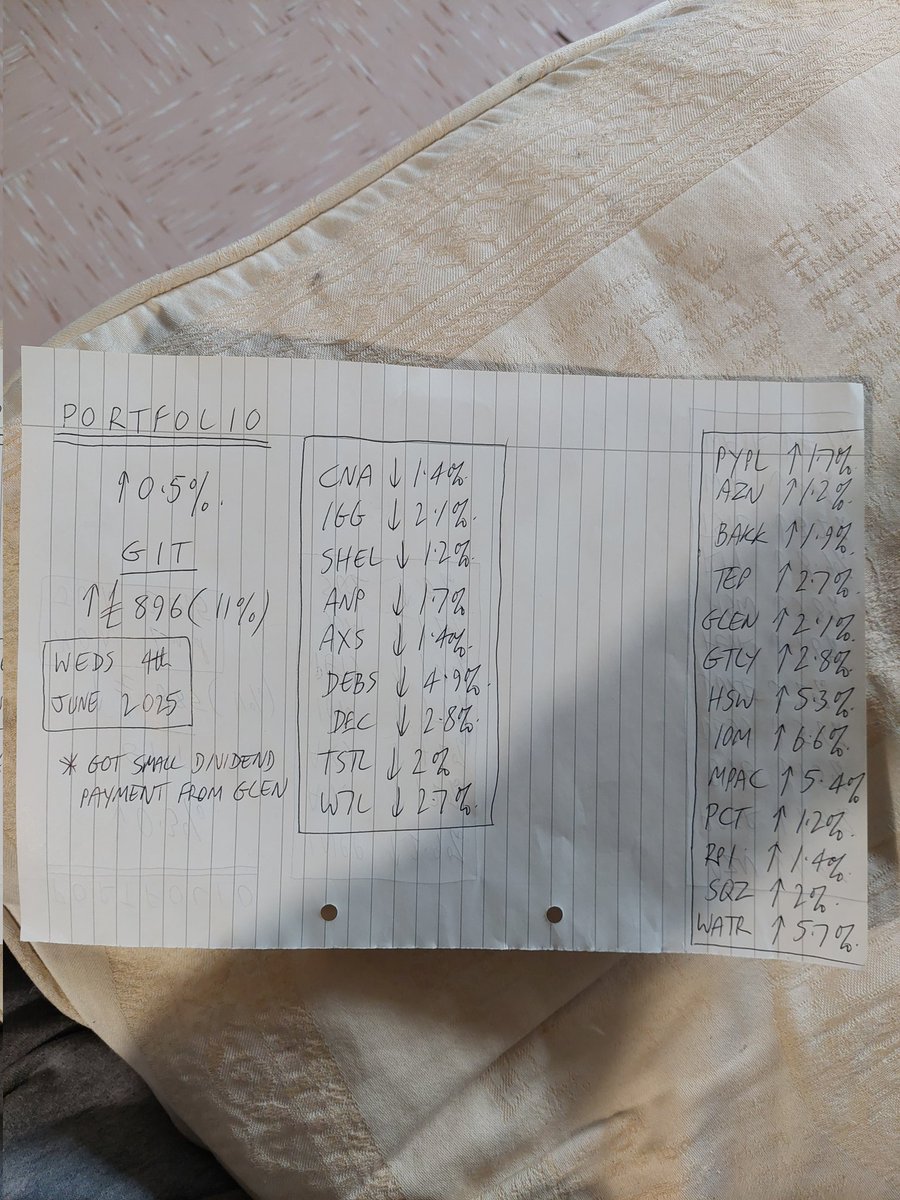 PORTFOLIO
↑ 0.5%.
GIT
↑ £ 896 (11%)
WEDS 4th
JUNE 2025
* GOT SMALL DIVIDEND
PAYMENT FROM GLEN
CNA ↓ 1.4%.
IGG ↓ 2.1%.
SHEL ↓ 1.2%.
ANP ↓ 1.7%
AXS ↓ 1.4%.
DEBS ↓ 4.9%.
DEC ↓ 2.8%.
TSTL ↓ 2%
W7L ↓ 2.7%.
PYPL ↑ 1.7%.
AZN ↑ 1.2%
BAKK ↑ 1.9%.
TEP ↑ 2.7%.
GLEN ↑ 2.1%.
GTLY ↑ 2.8%.
HSW ↑ 5.3%.
IOM ↑ 6.6%.
MPAC ↑ 5.4%
PCT ↑ 1.2%.
RPI ↑ 1.4%.
SQZ ↑ 2%.
WATR ↑ 5.7%.